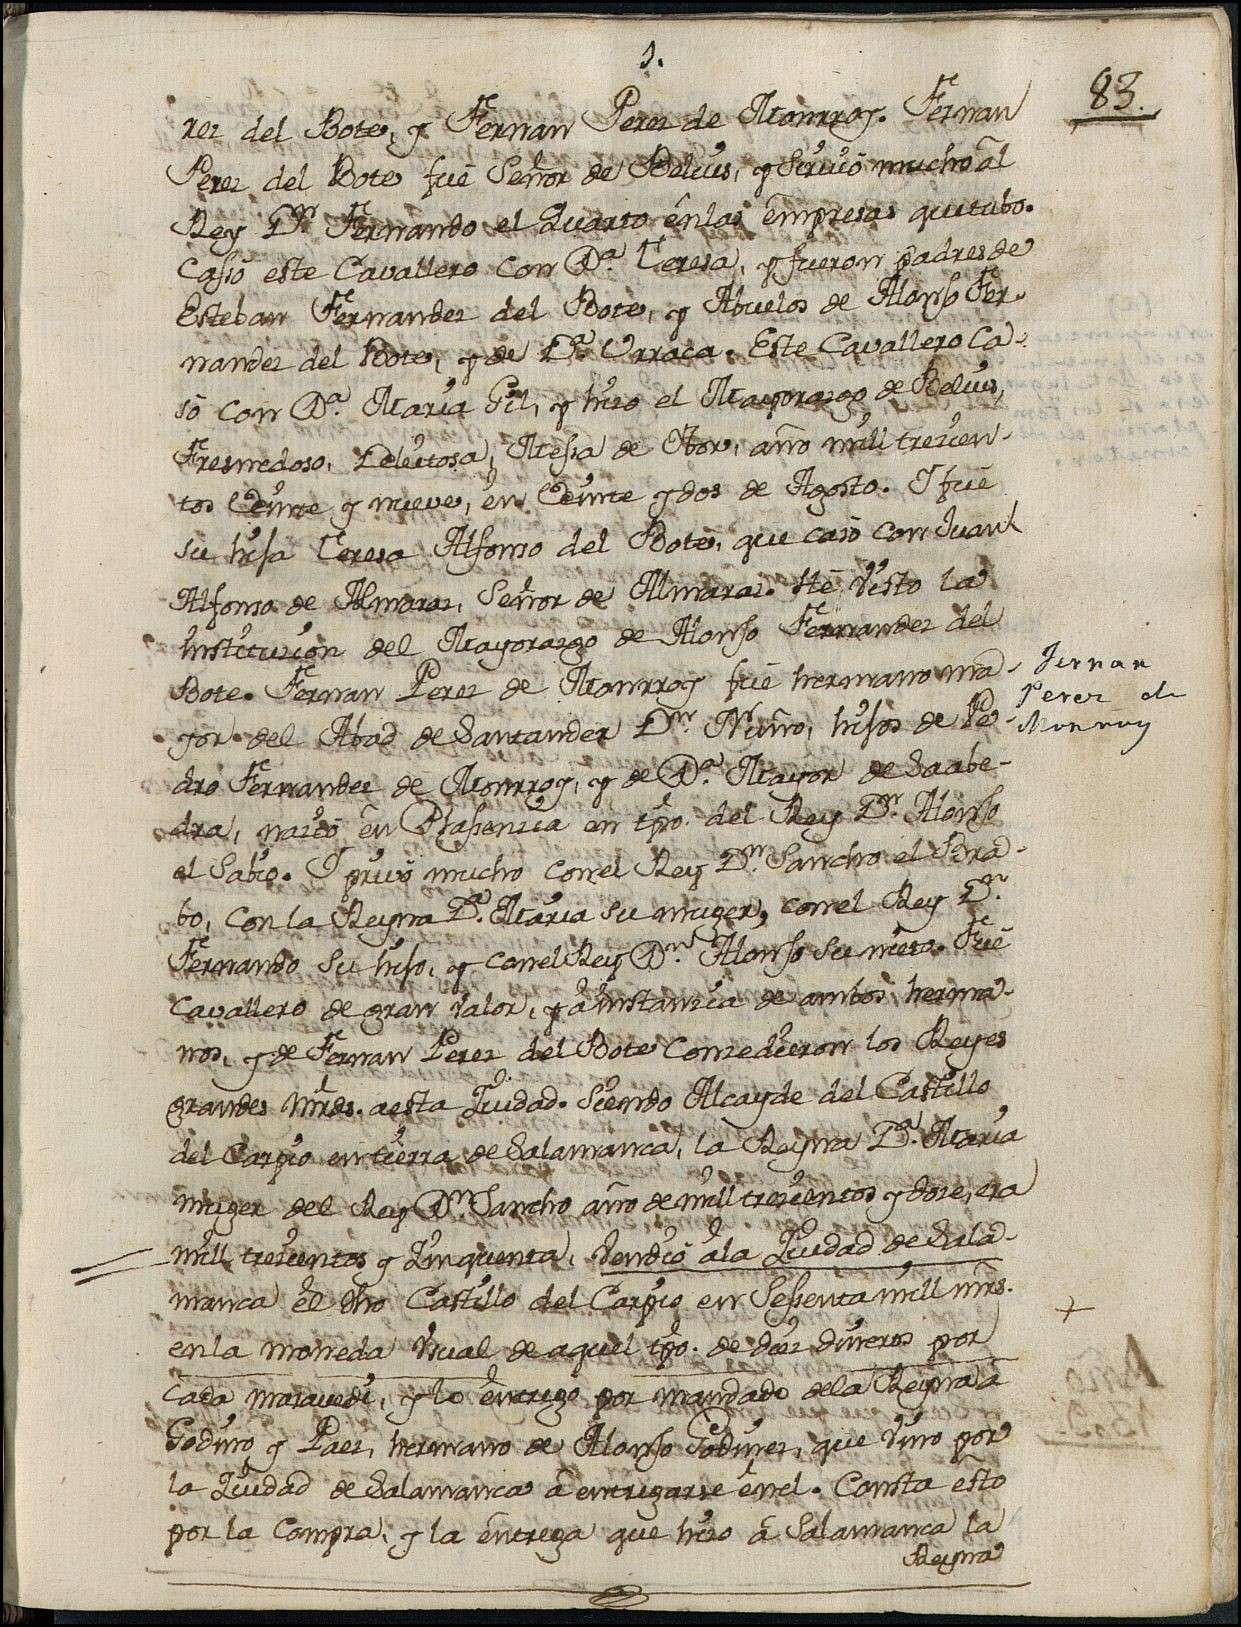 1.
83.
rez del Bote, y Fernan Perez de Monrroy. Fernan
Perez del Bote fuè Señor de Belvis, y Sirviò mucho àl
Rey Dn. Fernando el Quarto ênlas êmpresas quetubo.
Casò este Cavallero con Da. Teresa, y fueron padres de
Esteban Fernandez del Bote, y Abuelos de Alonso Fer-
nandez del Bote, y de Da. Urraca. Este Cavallero Ca-
sò con Da. Maria Gil, y hizo el Mayorazgo de Belvis,
Fresnedoso, Deleitosa, Mesa de Ibor, año mill trecien-
tos Veinte y nueve, en Veinte y dos de Agosto. I fuè
su hija Teresa Alfonso del Bote, que casò con Juan
Alfonso de Almaraz, Señor de Almaraz. Hè Visto la
Institucion del Mayorazgo de Alonso Fernandez del
Bote. Fernan Perez de Monrroy fuè hermano ma-
yor del Abad de Santander Dn. Nuño, hijos de Pe-
dro Fernandez de Monrroy, y de Da. Mayor de Saabe-
dra, naziò en Plasenzia en tpo. del Rey Dn. Alonso
el Sabio. I privò mucho conel Rey Dn. Sancho el Bra-
bo, con la Reyna Da. Maria su muger, conel Rey Dn.
Fernando su hijo, y conel Rey Dn. Alonso su nieto. Fuè
Cavallero de gran valor, y â instanzia de ambos herma-
nos, y de Fernan Perez del Bote Conzedieron los Reyes
grandes mrds. aesta Ziudad. Siendo Alcayde del Castillo
del Carpio en tierra de Salamanca, la Reyna Da. Maria
muger del Rey Dn. Sancho año de mill trecientos y doze, era
mill trecientos y Zinquenta, Vendiò âla Ziudad de Sala-
manca êl dho Castillo del Carpio en Sesenta mill mrs.
enla moneda Usual de aquel tpo. de diez dineros por
cada maravedi, y lo êntregò por mandado dela Reyna â
Godino y Paez, hermano de Alonso Godinez, que Vino por
la Ziudad de Salamanca â entregarse ênel. Consta esto
por la Compra, y la êntrega que hizo â Salamanca la
Reyna
Fernan
Perez de
Monroy
+